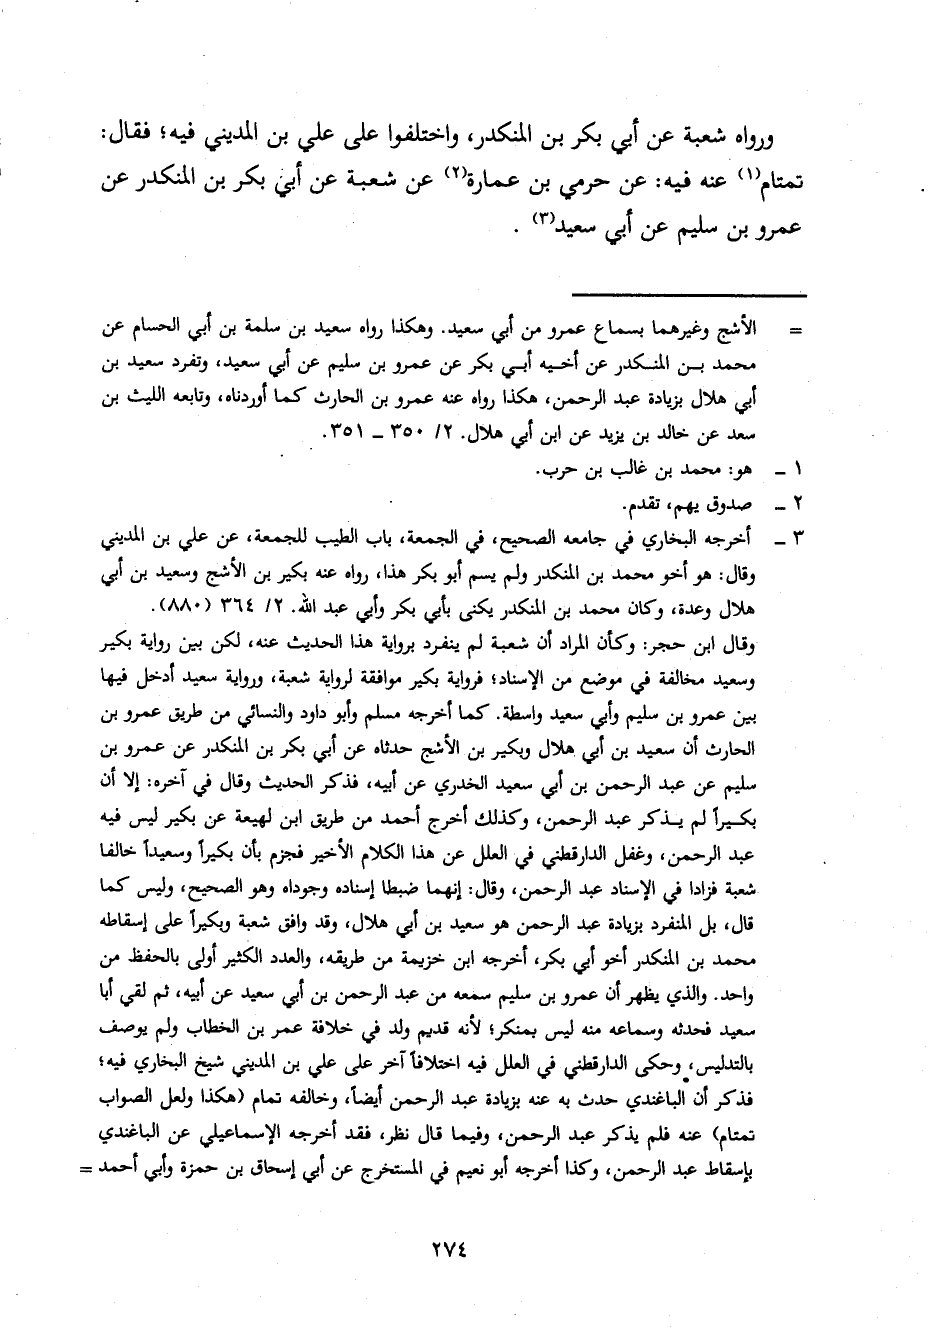 ورواه شعبة عن أبي بكر بن المنكدر، واختلفوا على علي بن المديني فيه؛ فقال:
تمتام(١) عنه فيه: عن حرمي بن عمارة(٢) عن شعبة عن أبي بكر بن المنكدر عن
عمرو بن سليم عن أبي سعيد(٣) .
= الأشج وغيرهما بسماع عمرو من أبي سعيد. وهكذا رواه سعيد بن سلمة بن أبي الحسام عن
محمد بن المنكدر عن أخيه أبي بكر عن عمرو بن سليم عن أبي سعيد، وتفرد سعيد بن
أبي هلال بزيادة عبد الرحمن، هكذا رواه عنه عمرو بن الحارث كما أوردناه، وتابعه الليث بن
سعد عن خالد بن يزيد عن ابن أبي هلال. ٢/ ٣٥٠ - ٣٥١.
١ - هو: محمد بن غالب بن حرب.
٢ - صدوق يهم، تقدم.
٣ - أخرجه البخاري في جامعه الصحيح، في الجمعة، باب الطيب للجمعة، عن علي بن المديني
وقال: هو أخو محمد بن المنكدر ولم يسم أبو بكر هذا، رواه عنه بكير بن الأشج وسعيد بن أبي
هلال وعدة، وكان محمد بن المنكدر يكنى بأبي بكر وأبي عبد الله. ٢/ ٣٦٤ (٨٨٠).
وقال ابن حجر: وكأن المراد أن شعبة لم ينفرد برواية هذا الحديث عنه، لكن بين رواية بكير
وسعيد مخالفة في موضع من الإسناد؛ فرواية بكير موافقة لرواية شعبة، ورواية سعيد أدخل فيها
بين عمرو بن سليم وأبي سعيد واسطة. كما أخرجه مسلم وأبو داود والنسائي من طريق عمرو بن
الحارث أن سعيد بن أبي هلال وبكير بن الأشج حدثاه عن أبي بكر بن المنكدر عن عمرو بن
سليم عن عبد الرحمن بن أبي سعيد الخدري عن أبيه، فذكر الحديث وقال في آخره: إلا أن
بكيراً لم يذكر عبد الرحمن، وكذلك أخرج أحمد من طريق ابن لهيعة عن بكير ليس فيه
عبد الرحمن، وغفل الدارقطني في العلل عن هذا الكلام الأخير فجزم بأن بكيراً وسعيداً خالفا
شعبة فزادا في الإسناد عبد الرحمن، وقال: إنهما ضبطا إسناده وجوداه وهو الصحيح، وليس كما
قال، بل المنفرد بزيادة عبد الرحمن هو سعيد بن أبي هلال، وقد وافق شعبة وبكيراً على إسقاطه
محمد بن المنكدر أخو أبي بكر، أخرجه ابن خزيمة من طريقه، والعدد الكثير أولى بالحفظ من
واحد. والذي يظهر أن عمرو بن سليم سمعه من عبد الرحمن بن أبي سعيد عن أبيه، ثم لقي أبا
سعيد فحدثه وسماعه منه ليس بمنكر؛ لأنه قديم ولد في خلافة عمر بن الخطاب ولم يوصف
بالتدليس، وحكى الدارقطني في العلل فيه اختلافاً آخر على علي بن المديني شيخ البخاري فيه؛
فذكر أن الباغندي حدث به عنه بزيادة عبد الرحمن أيضاً، وخالفه تمام (هكذا ولعل الصواب
تمتام) عنه فلم يذكر عبد الرحمن، وفيما قال نظر، فقد أخرجه الإسماعيلي عن الباغندي
بإسقاط عبد الرحمن، وكذا أخرجه أبو نعيم في المستخرج عن أبي إسحاق بن حمزة وأبي أحمد =
٢٧٤